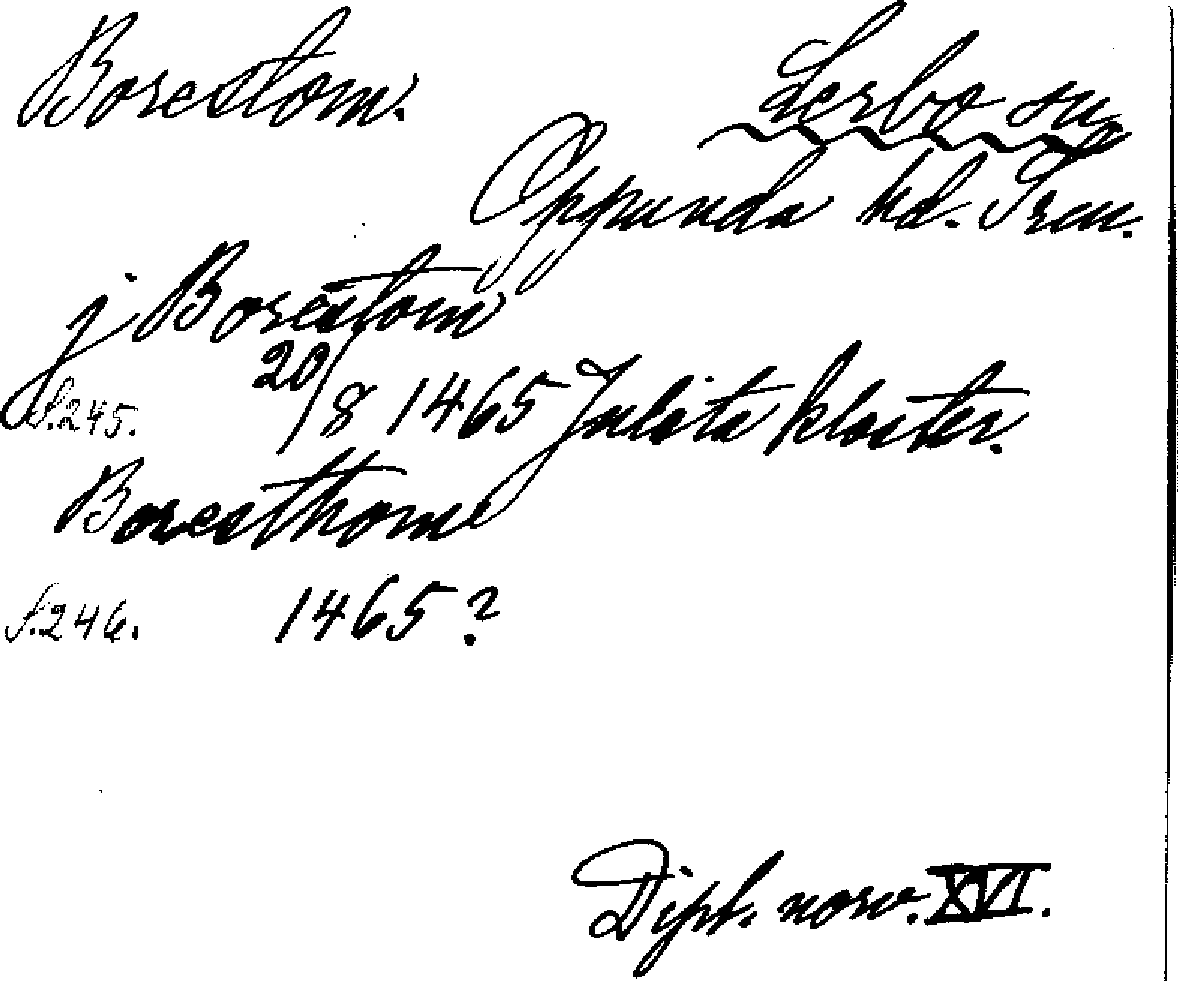 Borestom. Lerbo sn
Oppunda hd. Srm.
j Borestom
s. 245. 20/8 1465 Julita kloster.
Boresthom
s. 246. 1465?
Dipl. norv. XVI.